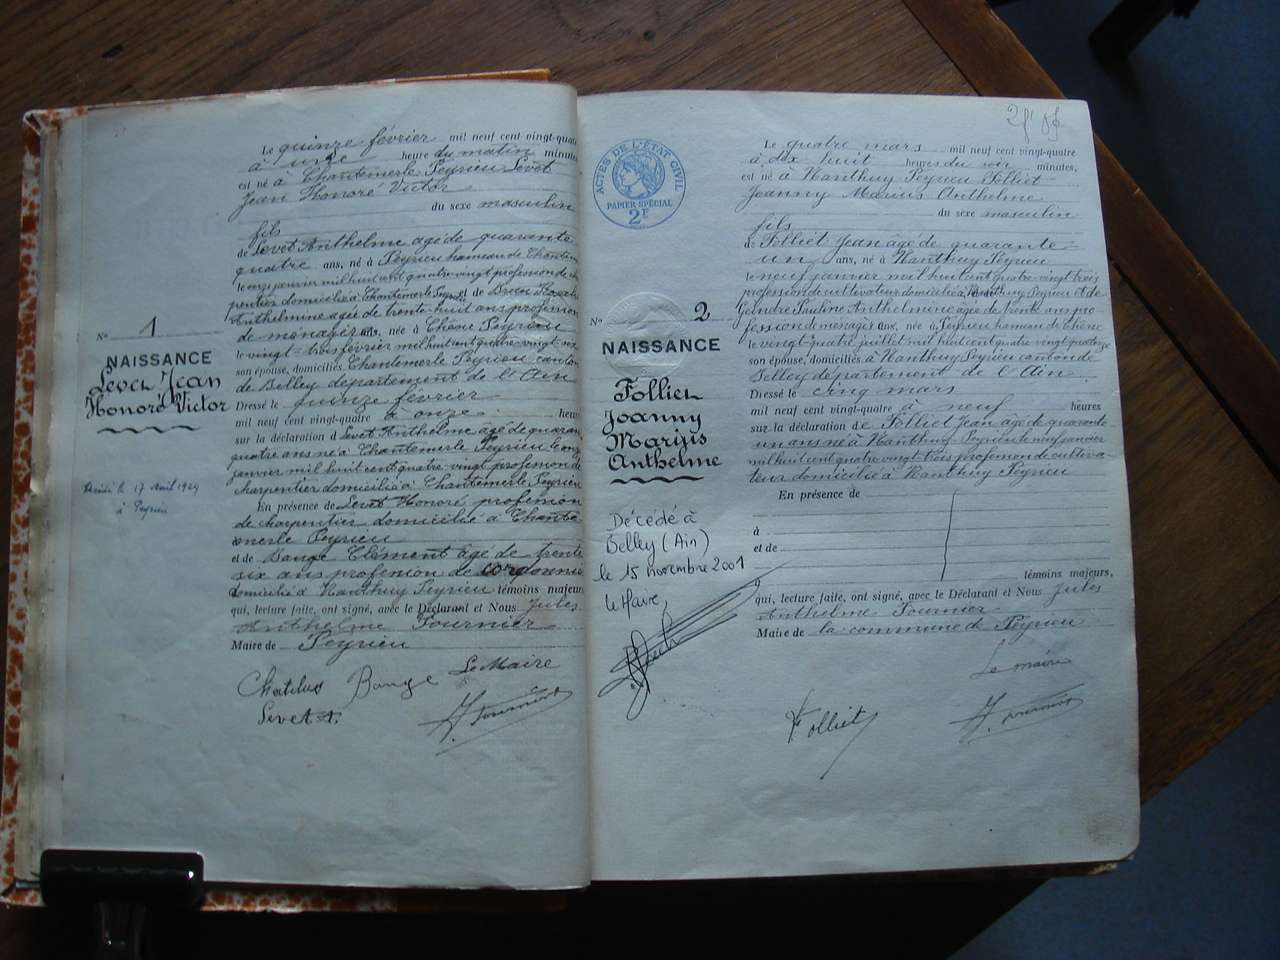 Le quinze février mil neuf cent vingt-quatre
à une heure du matin minutes,
est né à Chantemerle Peyrieu Levet
Jean Honoré Victor
du sexe masculin
fils
de Levet Anthelme âgé de quarante
quatre ans, né à Peyrieu hameau de
le onze janvier mil huit cent quatre-vingt profession de
pentier domicilié à Chantemerle Peyrieu et de
Anthelmine agée de trente-huit ans profession
de ménagère ans, née à Chêne Peyrieu
le vingt-trois février mil huit cent quatre-vingt-six
son épouse, domiciliés Chantemerle Peyrieu canton
de Belley département de l'Ain
Dressé le quinze février
mil neuf cent vingt-quatre à onze heures
sur la déclaration d Levet Anthelme âgé de quaran
quatre ans né à Chantemerle Peyrieu le onze
janvier mil huit cent quatre-vingt profession de
charpentier domicilié à Chantemerle Peyrieu
En présence de Levet Honoré profession
de charpentier domicilié à Chante-
merle Peyrieu
et de Bange Clément âgé de trente
six ans profession de cordonnier
domicilié à Nanthuy Peyrieu témoins majeurs,
qui, lecture faite, ont signé, avec le Déclarant et Nous Jules
Anthelme Fournier
Maire de Peyrieu
Bange Le Maire
Levet A. J. Fournier
No 1
NAISSANCE
Levet Jean
Honoré Victor
Décédé le 17 Avril 1924
à Peyrieu
ACTES DE L'ÉTAT CIVIL
PAPIER SPÉCIAL
2F
No 2
NAISSANCE
Folliet
Joanny
Marius
Anthelme
Décédé à
Belley (Ain)
le 15 novembre 2001
le Maire,
Le quatre mars mil neuf cent vingt-quatre
à dix huit heures du soir minutes,
est né à Nanthuy Peyrieu Folliet
Joanny Marius Anthelme
du sexe masculin
fils
de Folliet Jean âgé de quarante
un ans, né à Nanthuy Peyrieu
le neuf janvier mil huit cent quatre-vingt-trois
profession de cultivateur domicilié à Nanthuy Peyrieu et de
Gindre Pauline Anthelmine agée de trente ans pro-
fession de ménagère ans, née à Peyrieu hameau de Chêne
le vingt-quatre juillet mil huit cent quatre vingt quatorze
son épouse, domiciliés à Nanthuy Peyrieu canton de
Belley département de l'Ain
Dressé le cinq mars
mil neuf cent vingt-quatre à neuf heures
sur la déclaration de Folliet Jean âgé de quarante
un ans né à Nanthuy Peyrieu le neuf janvier
mil huit cent quatre-vingt-trois profession de cultiva-
teur domicilié à Nanthuy Peyrieu
En présence de
à
et de
à témoins majeurs,
qui, lecture faite, ont signé, avec le Déclarant et Nous Jules
Anthelme Fournier
Maire de la commune de Peyrieu
Le maire
Folliet J. Fournier